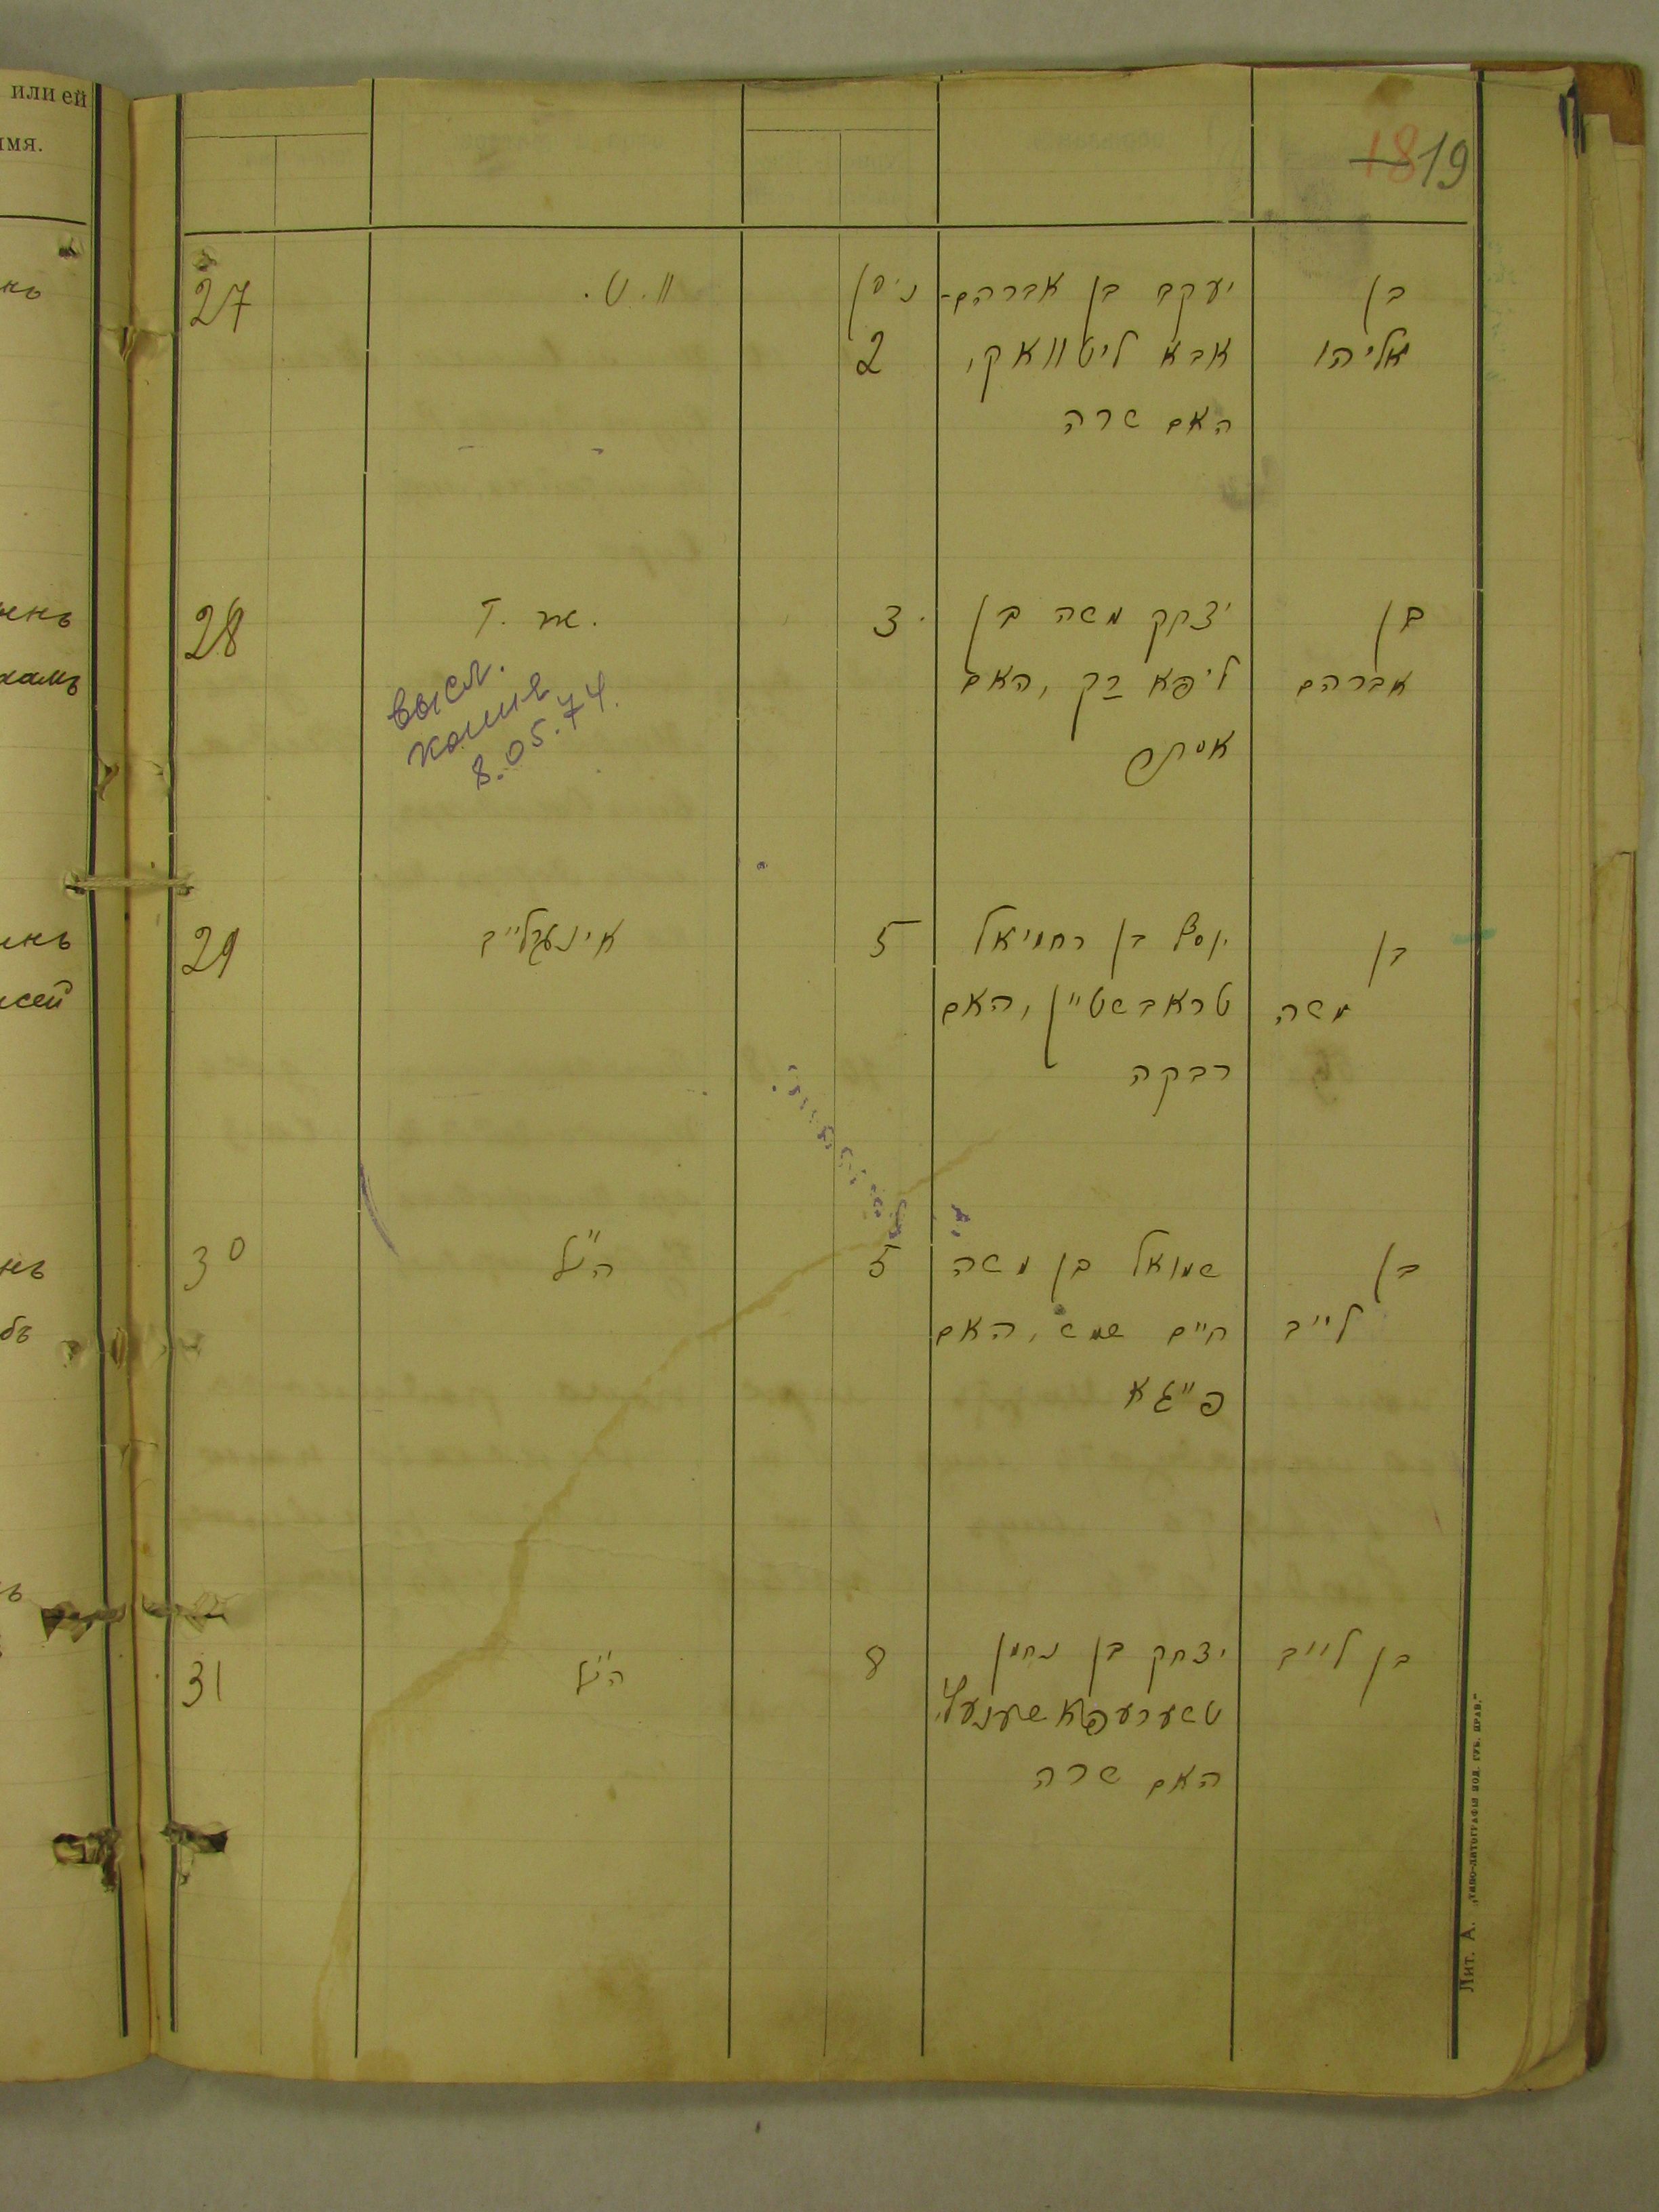 или ей
имя.
18 19
בן
אליהו
יעקב בן אברהם-
אבא ליטוואק,
האם שרה
ניסן
2
וו. ט.
27
בן
אברהם
יצחק משה בן
ליפא רק, האם
אסתר
3
т. ж.
высл.
копия
8.05.74.
28
בן
משה
יוסף בן רחמיאל
טראבשטיין, האם
רבקה
5
אינגעלייב
29
בן
לייב
שמואל בן משה
חיים שמש, האם
פייגא
5
הנ״ל
30
בן לייב
יצחק בן נחמן
האם שרה
8
הנ״ל
31
Лит. А. „Типо-литографiи вод. губ. прав.“